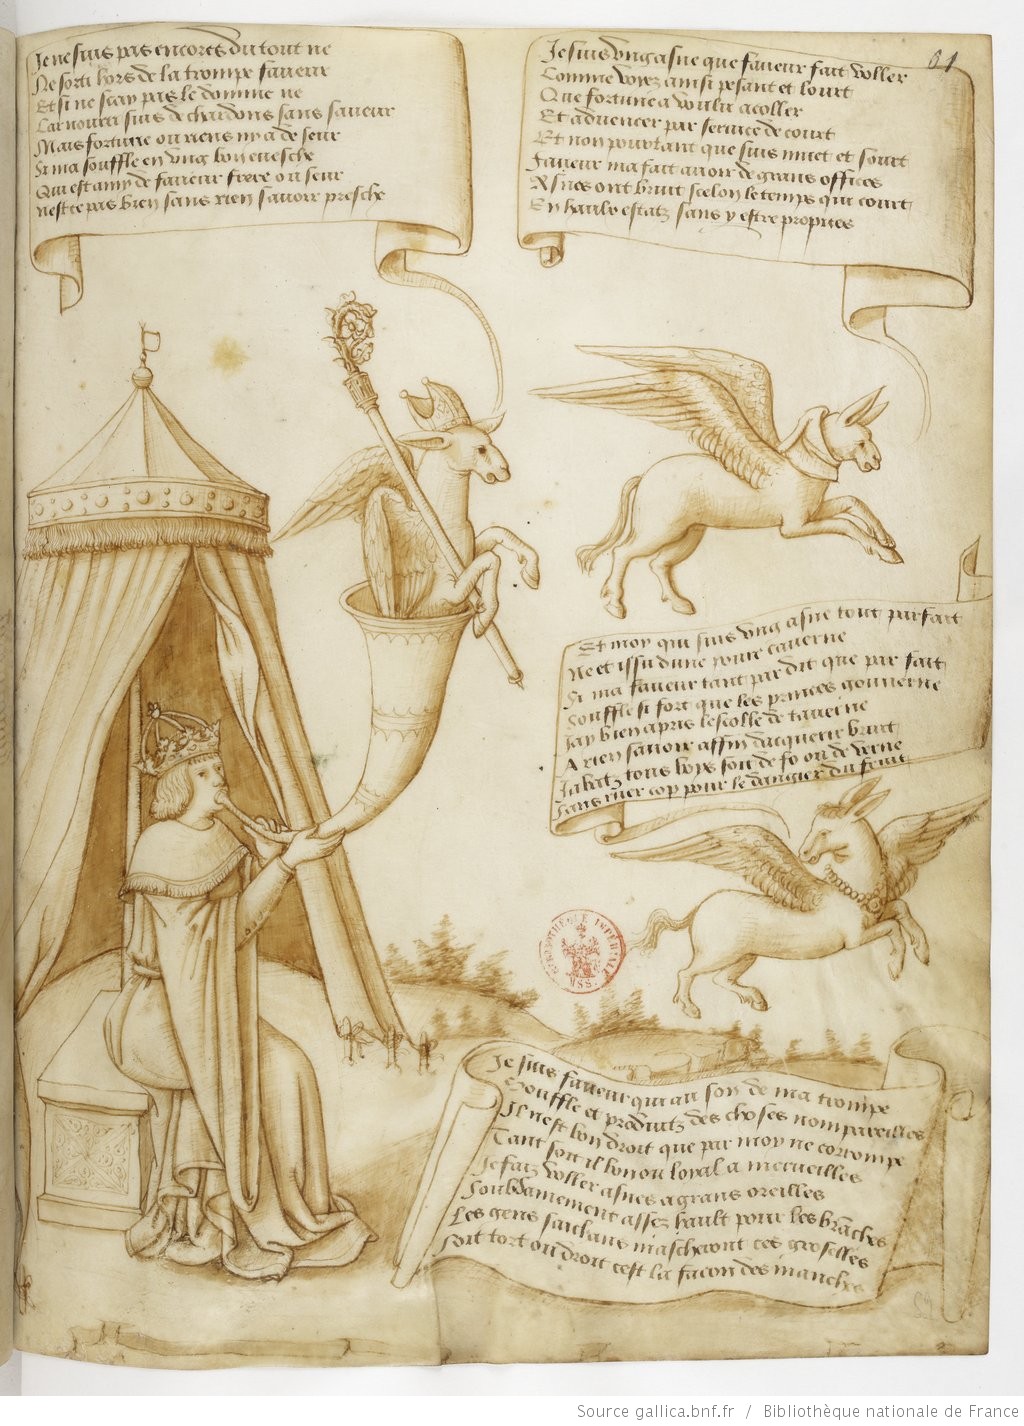 Je ne suis pas encores du tout ne
Ne sorti hors de la trompe faueur
Et si ne scay pas le domine ne
Car nourri suis de chardons sans saueur
Mais fortune ou riens ny a de seur
Si ma souffle en vng bon euesche
Qui est amy de faueur frere ou seur
nest ce pas bien sans rien sauoir presche
Je suis vng asne que faueur fait voller
Comme voyez ainsi pesant et lourt
Que fortune a voulu acoller
Et aduencer par seruice de court
Et non pourtant que suis muet et sourt
Faueur ma fait auoir de grans offices
Asnes ont bruit scelon le temps qui court
En haulx estatz sans y estre propices
61
Et moy qui suis vng asne tout parfait
Ne et issu dune caverne
Si ma faueur tant par dit que par fait
Souffle si fort que les princes gouuerne
Jay bien apris lescolle de tauerne
A rien sauoir affin dacquerir bruit
Jabatz tous boys soit de fo ou de verne
Sans ruer cop pour le dangier du fruit
BIBLIOTHÈQUE IMPÉRIALE
MSS.
Je suis faueur qui au son de ma trompe
Souffle et produitz des choses nompareilles
Il nest bon droit que par moy ne corrompe
Tant soit il bon ou loyal a merueilles
Je faiz voller asnes a grans oreilles
Soubdainement assez hault pour les brāches
Les gens saichans mascheront ces groselles
Soit tort ou droit cest la facon des manches
Source gallica.bnf.fr / Bibliothèque nationale de France